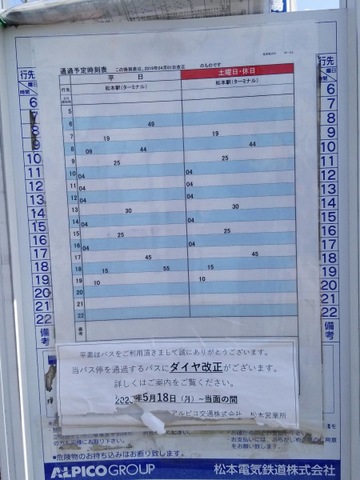 通過予定時刻表 この時刻表は、2019年04月01日改正 のものです
平 日 土曜日・休日
行先 松本駅(ターミナル) 松本駅(ターミナル)
行先 行先
曜日 曜日
時間 時間
5
6 6 49 6
7 7 19 19 7
8 8 09 44 44 8
9 9 25 25 9
10 10 04 04 10
11 11 11
12 12 04 04 12
13 13 30 30 13
14 14 04 04 14
15 15 25 25 15
16 16 04 04 16
17 17 45 45 17
18 18 15 55 15 18
19 19 10 10 19
20 20 20
21 21 21
22 22 22
備考 備考 備考
平素はバスをご利用頂きまして誠にありがとうございます。
当バス停を通過するバスにダイヤ改正がございます。
詳しくはご案内をご覧ください。
5月18日(月)~当面の間
アルピコ交通株式会社 松本営業所
●危険物のお持ち込みはお断り致します。
ALPICO GROUP 松本電気鉄道株式会社